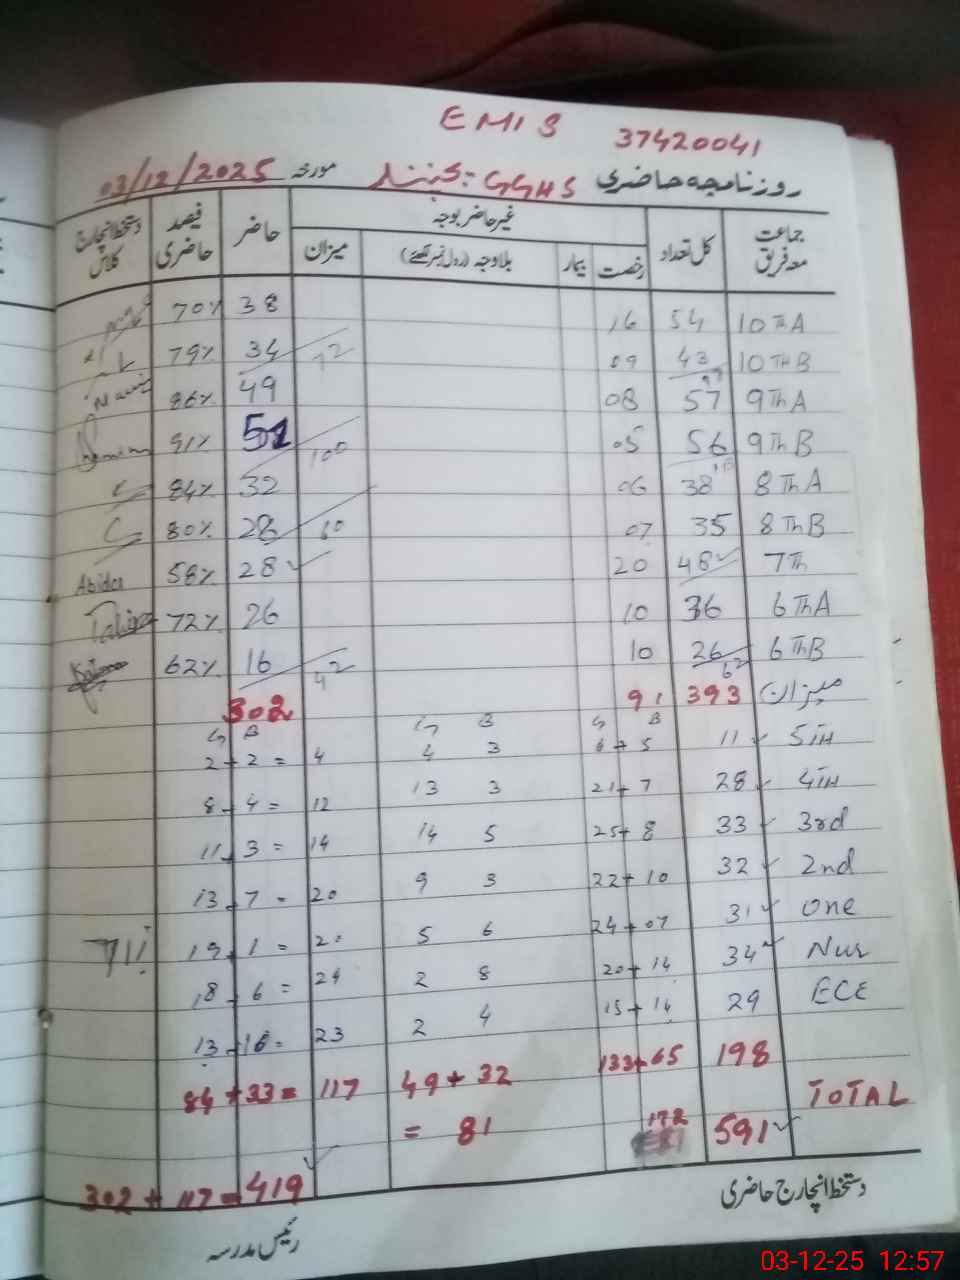 EMIS 37420041
روزنامچہ حاضری GGHS مورخہ 03/12/2025
جماعت معہ فریق کل تعداد غیر حاضر بوجہ حاضر فیصد حاضری دستخط انچارج کلاس
رخصت بیمار بلاوجہ (رول نمبر لکھئے) میزان
10Th A 54 16 38 70%
10TH B 43 09 34 79%
97 72
9Th A 57 08 49 86%
9Th B 56 05 51 91%
113 100
8Th A 38 06 32 84%
8Th B 35 07 28 80% 60
7Th 48 20 28 58% Abida
6ThA 36 10 26 72%
6ThB 26 10 16 62%
62 42
میزان 393 91 302
G B G B G B
5TH 11 6 + 5 4 3 2 + 2 = 4
4TH 28 21 + 7 13 3 8 + 4 = 12
3rd 33 25 + 8 14 5 11 + 3 = 14
2nd 32 22 + 10 9 3 13 + 7 = 20
One 31 24 + 07 5 6 19 + 1 = 20
Nur 34 20 + 14 2 8 18 + 6 = 24
ECE 29 15 + 14 2 4 13 + 10 = 23
198 133+65 49 + 32 84 + 33 = 117
TOTAL 591 172 = 81
302 + 117 = 419
دستخط انچارج حاضری
رئیس مدرسہ
03-12-25 12:57